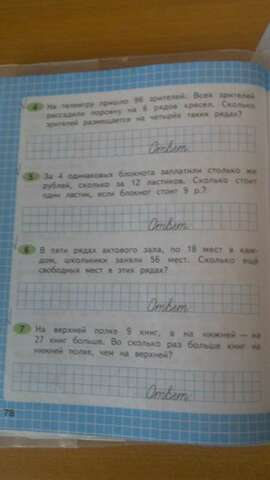 4 На телеигру пришло 96 зрителей. Всех зрителей
рассадили поровну на 6 рядов кресел. Сколько
зрителей размещается на четырёх таких рядах?
Ответ
5 За 4 одинаковых блокнота заплатили столько же
рублей, сколько за 12 ластиков. Сколько стоит
один ластик, если блокнот стоит 9 р.?
Ответ
6 В пяти рядах актового зала, по 18 мест в каж-
дом, школьники заняли 56 мест. Сколько ещё
свободных мест в этих рядах?
Ответ
7 На верхней полке 9 книг, а на нижней — на
27 книг больше. Во сколько раз больше книг на
нижней полке, чем на верхней?
Ответ
78